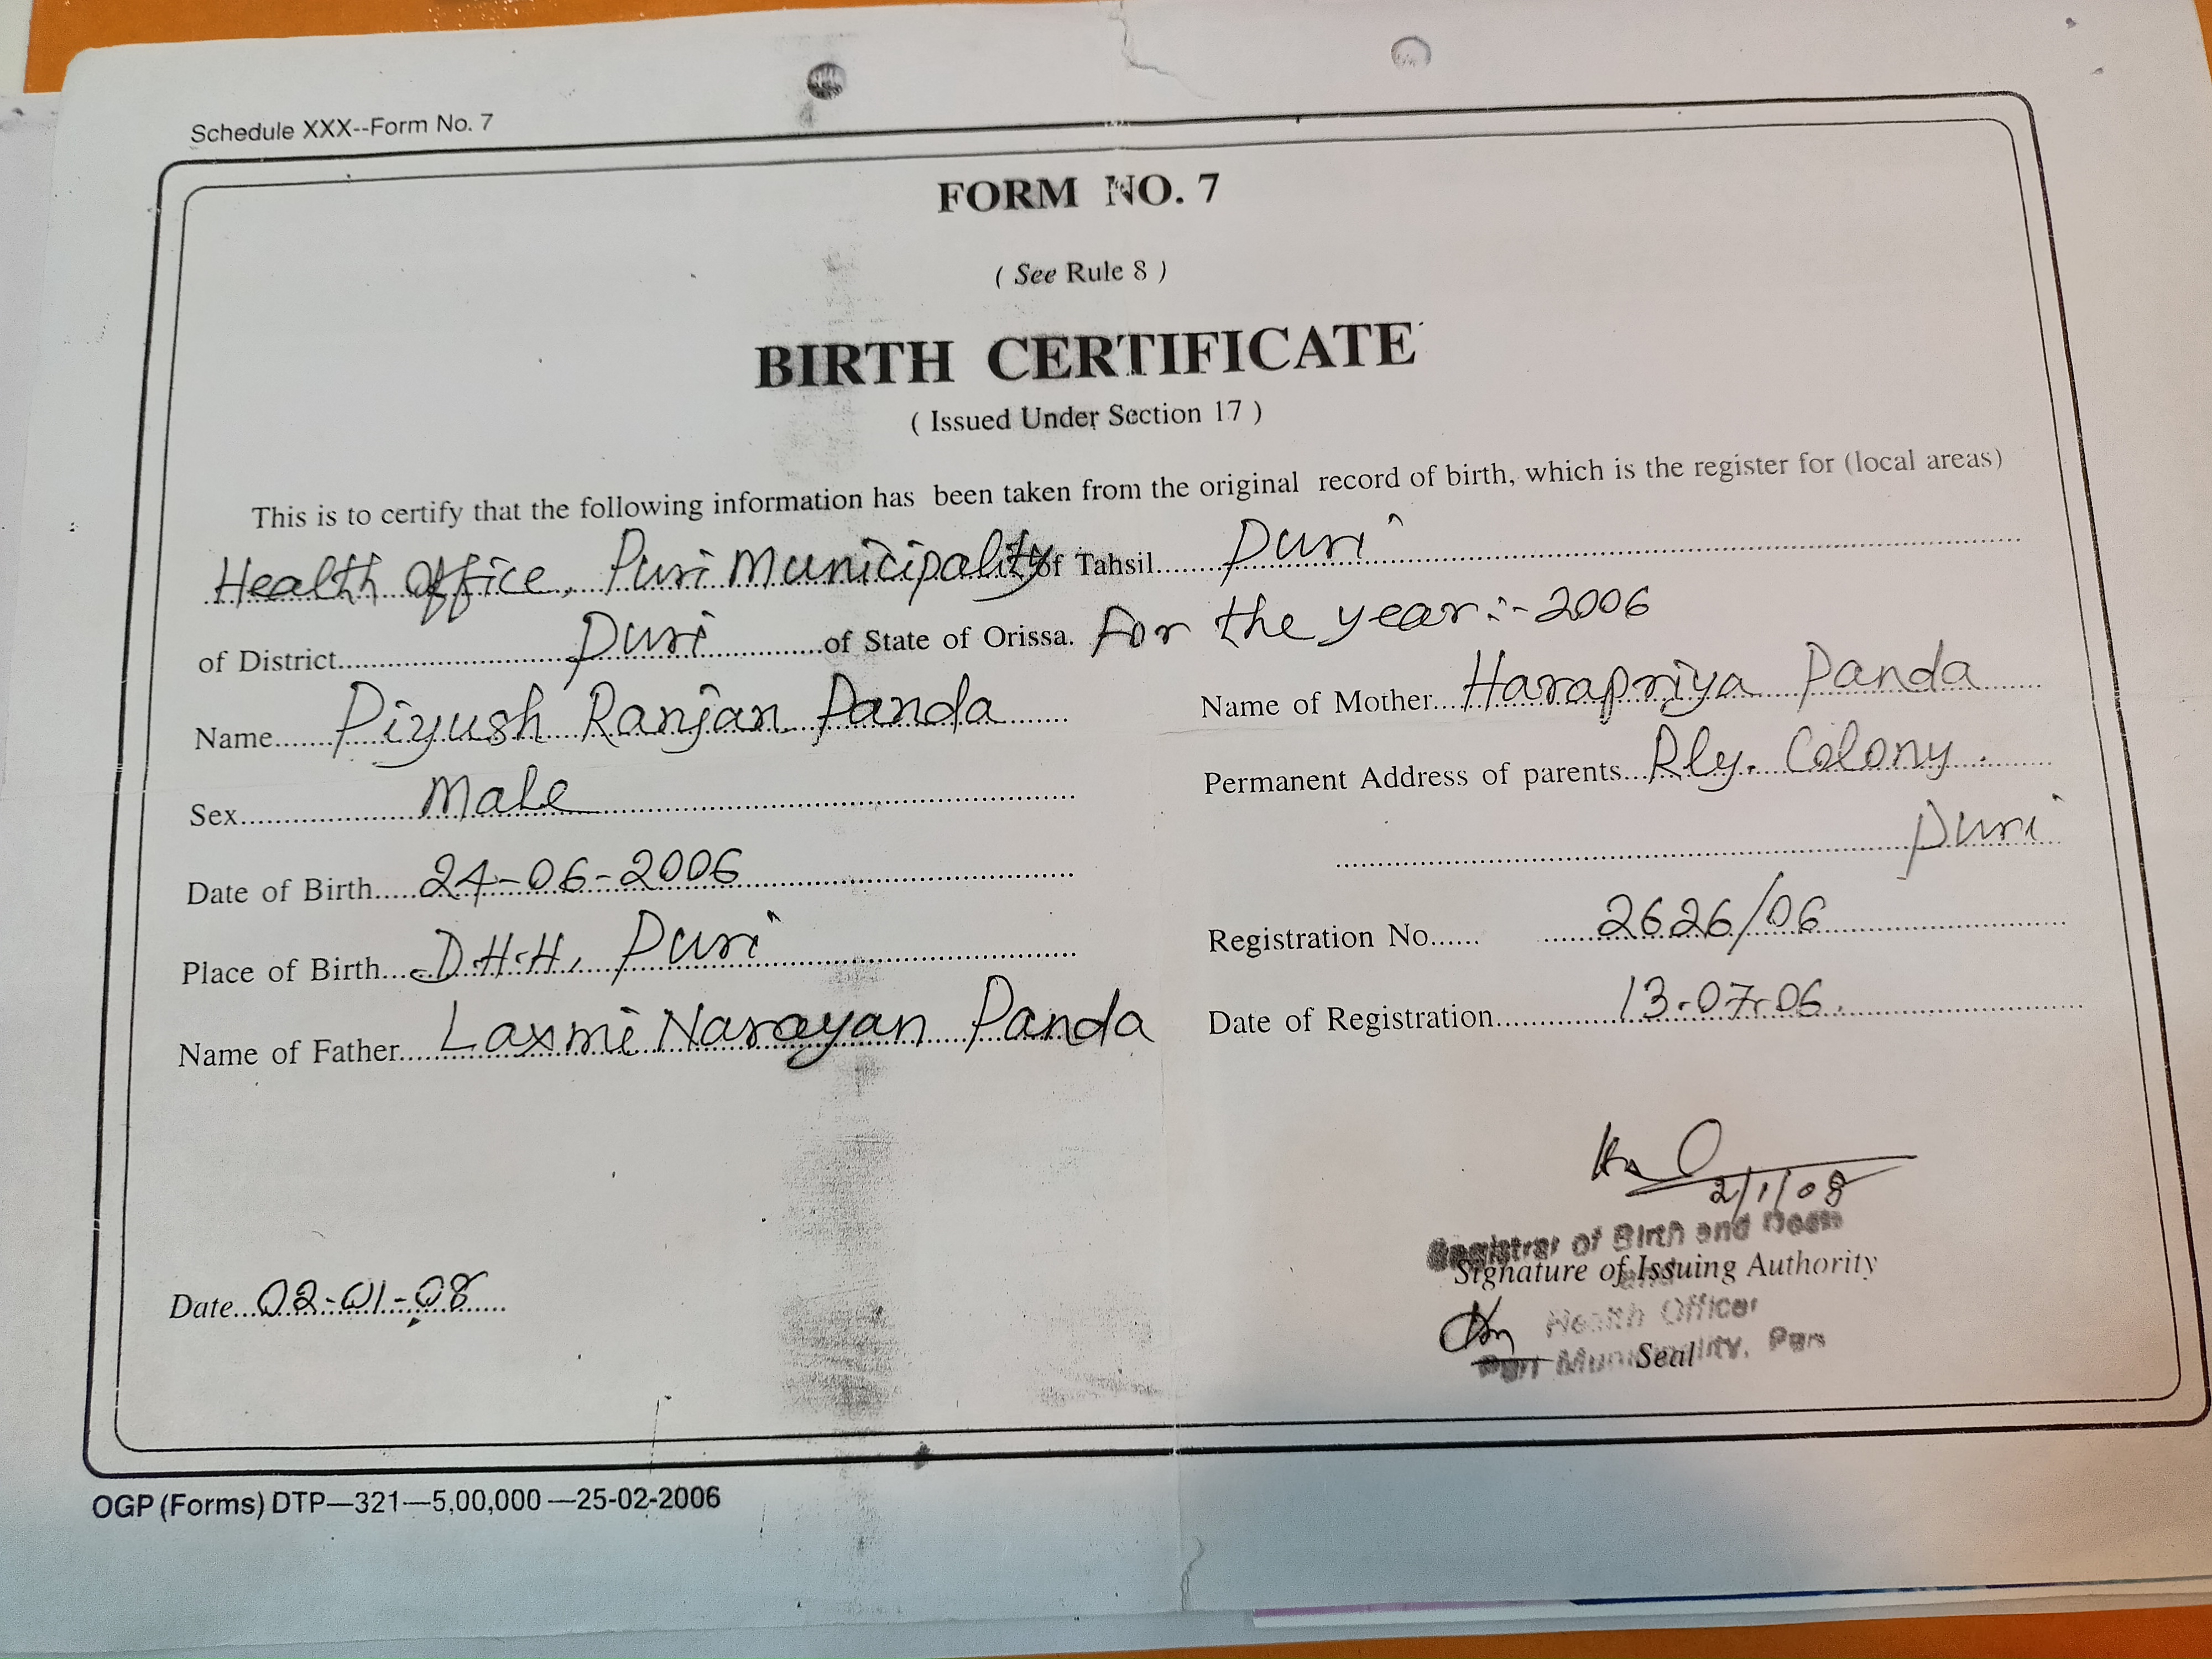 Schedule XXX--Form No. 7
FORM NO. 7
( See Rule 8 )
BIRTH CERTIFICATE
( Issued Under Section 17 )
This is to certify that the following information has been taken from the original record of birth, which is the register for (local areas)
Health Office, Puri Municipality of Tahsil Puri
of District Puri of State of Orissa. For the year:-2006
Name Piyush Ranjan Panda
Sex Male
Date of Birth 24-06-2006
Place of Birth D.H.H, Puri
Name of Father Laxmi Narayan Panda
Name of Mother Harapriya Panda
Permanent Address of parents Rly. Colony.
Puri
Registration No. 2626/06
Date of Registration 13-07-06.
2/1/08
Registrar of Birth and
Signature of Issuing Authority
and
Health Officer
Puri Municipality, Puri
Seal
Date 02-01-08
OGP (Forms) DTP—321—5,00,000—25-02-2006